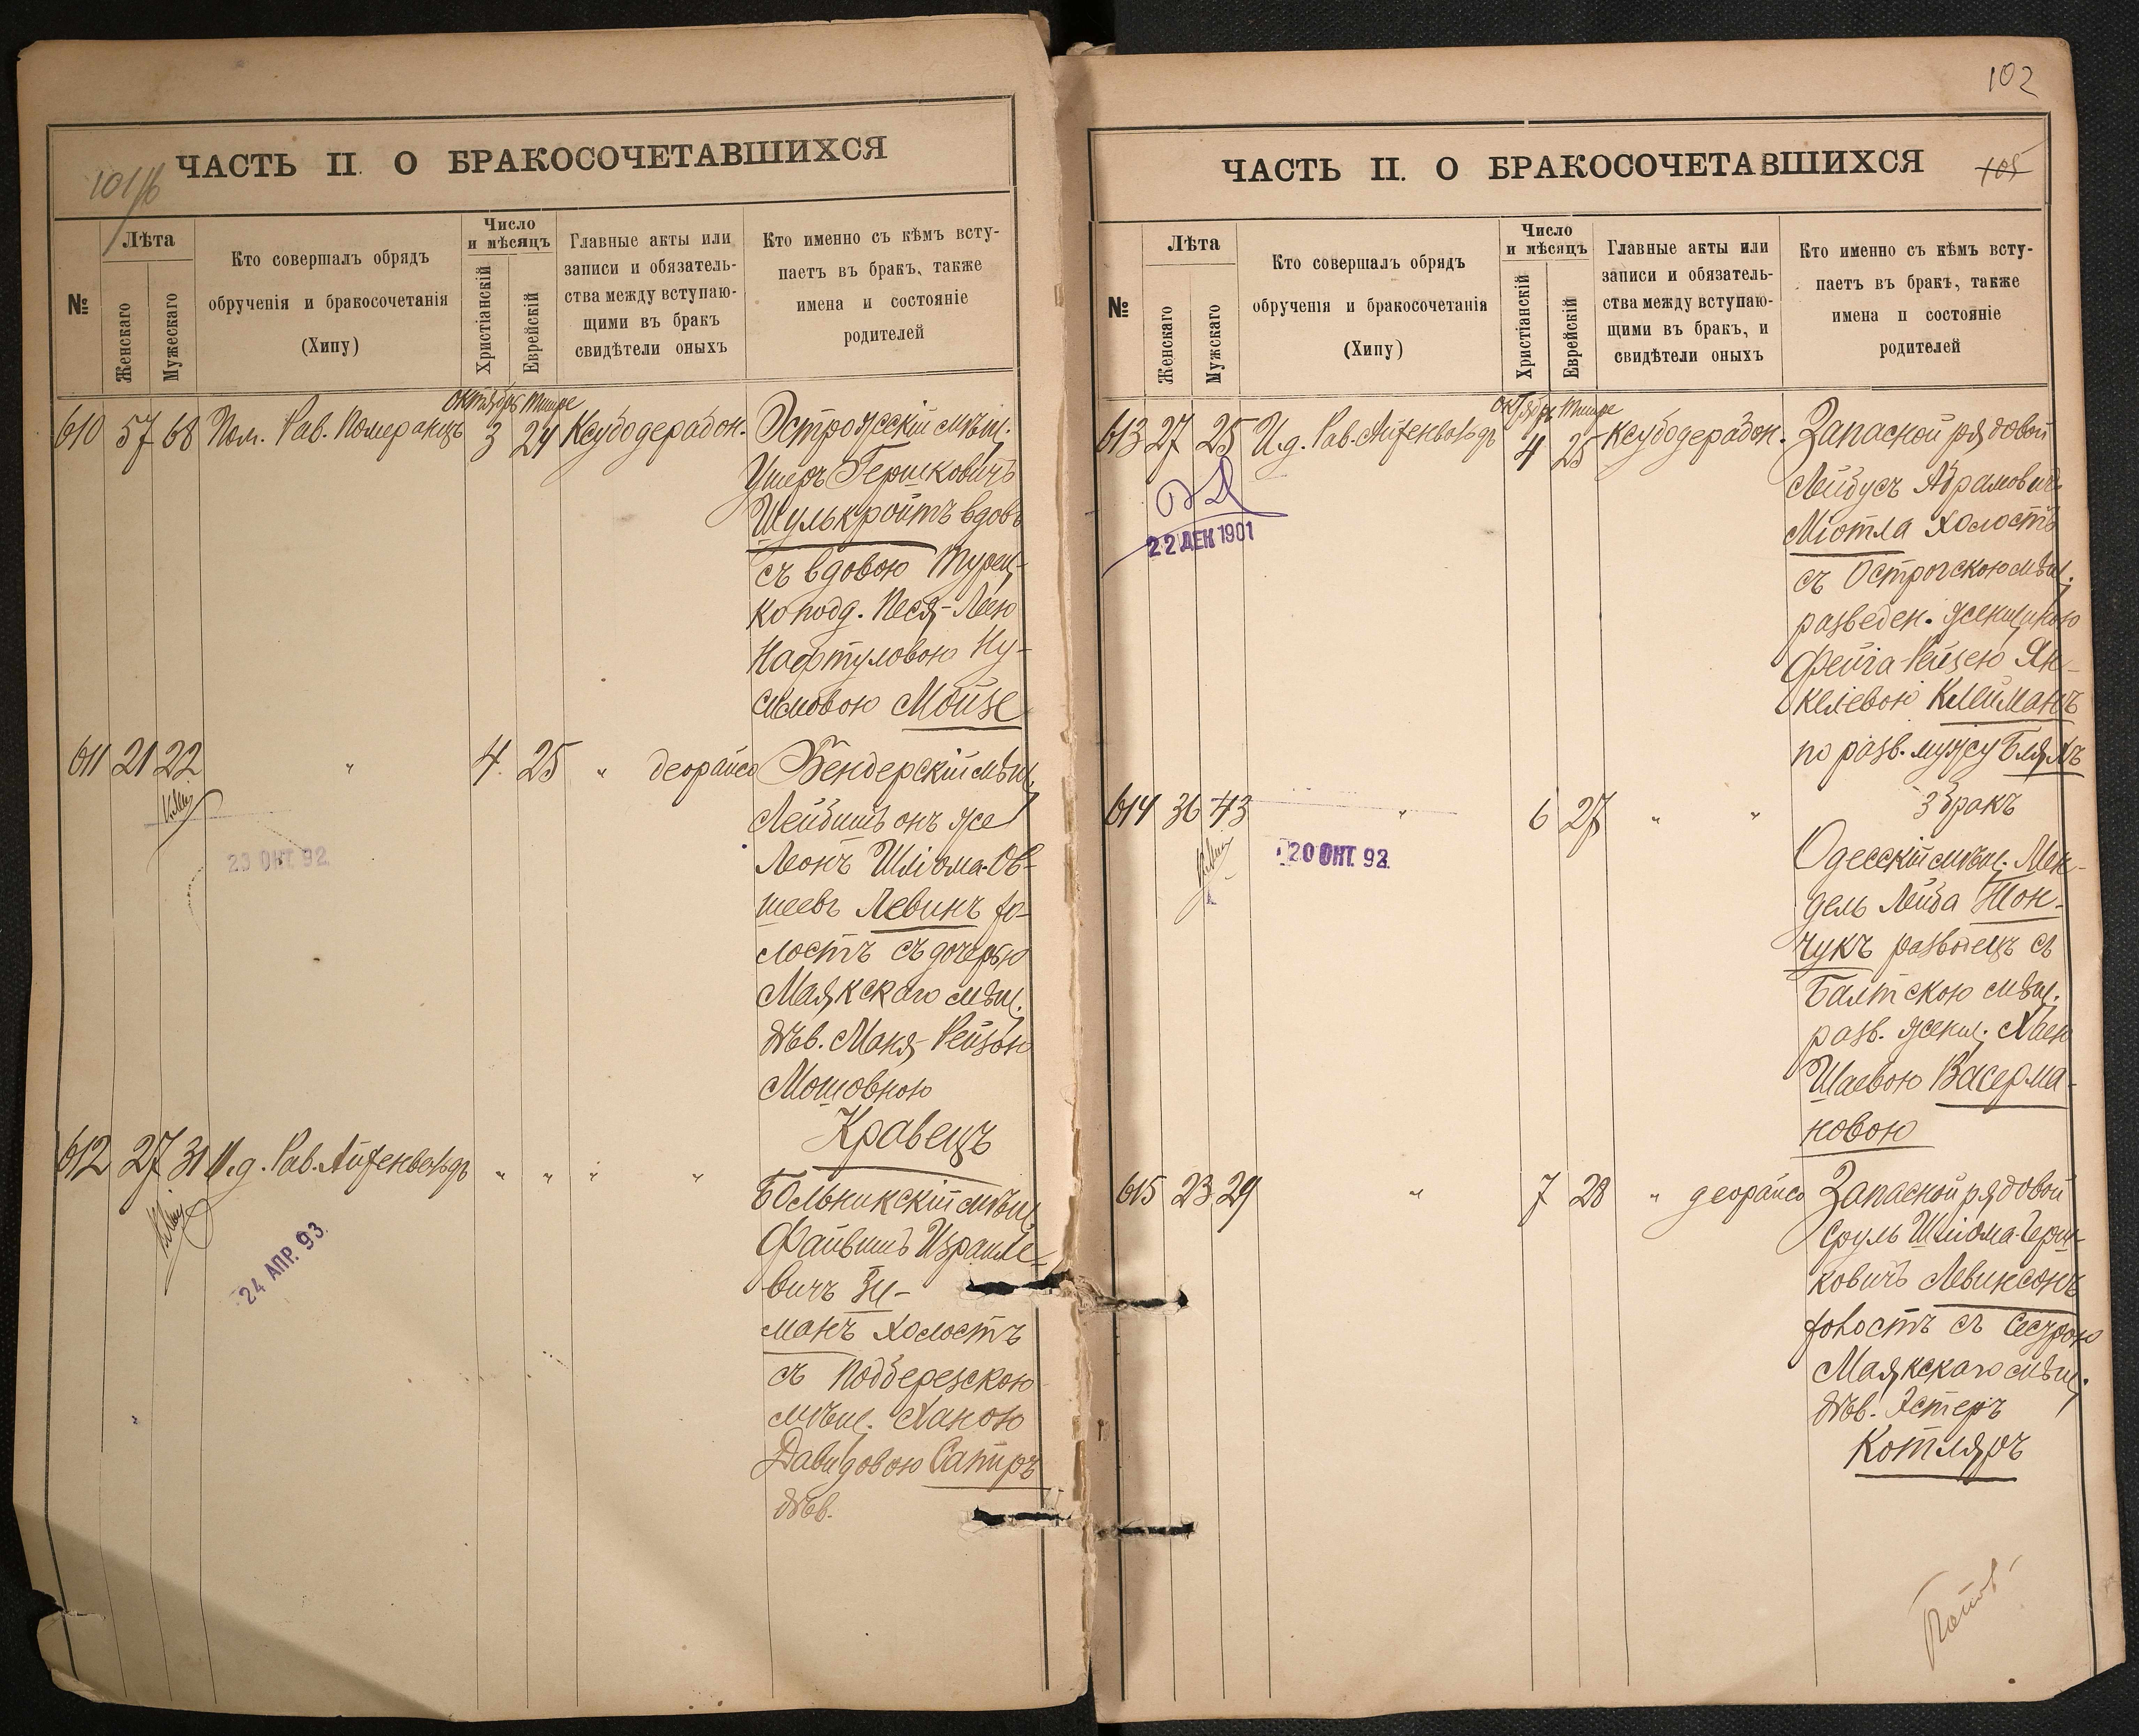 101/16
ЧАСТЬ II. О БРАКОСОЧЕТАВШИХСЯ
№
Лѣта
Женскаго
Мужескаго
Кто совершалъ обрядъ
обрученія и бракосочетанія
(Хипу)
Число
и мѣсяцъ
Христіанскій
Еврейскій
Главные акты или
записи и обязатель-
ства между вступаю-
щими въ бракъ
свидѣтели оныхъ
Кто именно съ кѣмъ всту-
паетъ въ бракъ, также
имена и состояніе
родителей
Октябрь Тишре
610 57 68 Пом. Рав. Померанцъ 3 24 Ксубодерабон. Острожскій мѣщ.
Ушеръ Гершковичъ
Шулькройтъ вдовъ
съ вдовою Турец-
ко подд. Песя-Леею
Нафтуловою Ну-
симовою Мойзе
611 21 22 " 4 25 " деорайсо Бендерскій мѣщ.
Лейбишъ онъ же
Леонъ Шліома-Ов-
шеевъ Левинъ хо-
лостъ съ дочерью
Маякскаго мѣщ.
дѣв. Маня-Рейзою
Мошовною
Кравецъ
23 ОКТ. 92
612 27 31 И.д. Рав. Айхенвальдъ " " " "
Файвишъ Израиле-
вичъ Зи-
манъ холостъ
съ Подберезскою
мѣщ. Ханою
Давидовою Сапиръ
дѣв.
24 АПР. 93
102
ЧАСТЬ II. О БРАКОСОЧЕТАВШИХСЯ
105
№
Лѣта
Женскаго
Мужскаго
Кто совершалъ обрядъ
обрученія и бракосочетанія
(Хипу)
Число
и мѣсяцъ
Христіанскій
Еврейскій
Главные акты или
записи и обязатель-
ства между вступаю-
щими въ бракъ, и
свидѣтели оныхъ
Кто именно съ кѣмъ всту-
паетъ въ бракъ, также
имена и состояніе
родителей
Октябрь Тишре
613 27 25 И.д. Рав. Айхенвальдъ 4 25 Ксубодерабон. Запасной рядовой
Лейбусъ Абрамовичъ
Міотла холостъ
съ Острогскою мѣщ.
разведен. женщиною
Фейга-Рейзею Ян-
келевою Клейманъ
по разв. мужу Бляхъ
22 ДЕК 1901
614 36 43 " 6 27 " " 3 бракъ
Одесскій мѣщ. Мен-
дель Лейба
чукъ разводецъ съ
Балтскою мѣщ.
разв. женщ. Хаею
Шаевою Васерма-
новою
20 ОКТ. 92
615 23 29 " 7 28 " деорайсо Запасной рядовой
Сруль Шліома-Герш-
ковичъ Левинсонъ
холостъ съ сестрою
Маякскаго мѣщ.
дѣв. Эстеръ
Котляръ